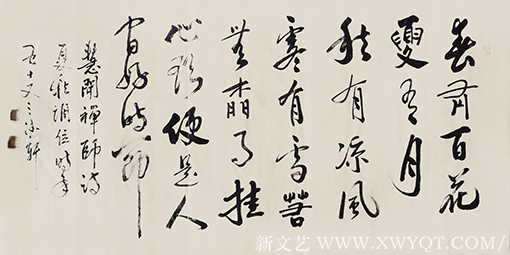 春有百花
夏有月
秋有涼風
寒有雪若
無閑事挂
心頭便是人
間好時節
慧開禪師詩
夏秋調位時年
五十又三軒
新文艺 WWW.XWYQT.COM